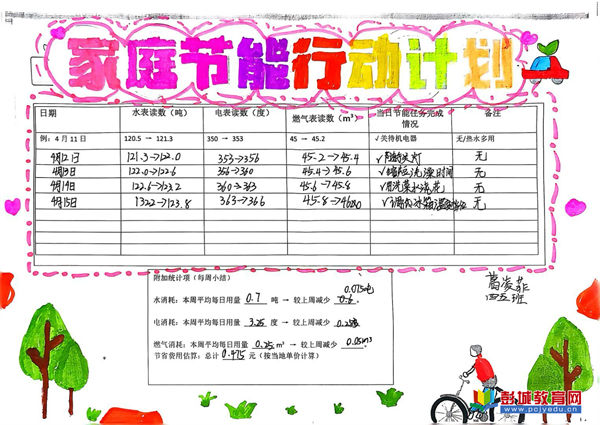 家庭节能行动计划
日期 水表读数（吨） 电表读数（度） 燃气表读数（m³） 当日节能任务完成情况 备注
例：4月11日 120.5 → 121.3 350 → 353 45 → 45.2 √关待机电器 无/热水多用
4月12日 121.3→122.0 353→356 45.2→45.4 关灯 无
122.0→122.6 356→360 45.4→45.6 洗澡时间 无
122.6→123.2 360→363 45.6→45.8 无
4月15日 363→366 无
附加统计项（每周小结）
水消耗：本周平均每日用量 0.7 吨 → 较上周减少 0.075吨
电消耗：本周平均每日用量 3.25 度 → 较上周减少
燃气消耗：本周平均每日用量 0.25 m³ → 较上周减少 0.05m³
节省费用估算：总计 0.475 元（按当地单价计算）
葛凌菲
四五班
彭城教育网
www.pcjyedu.cn